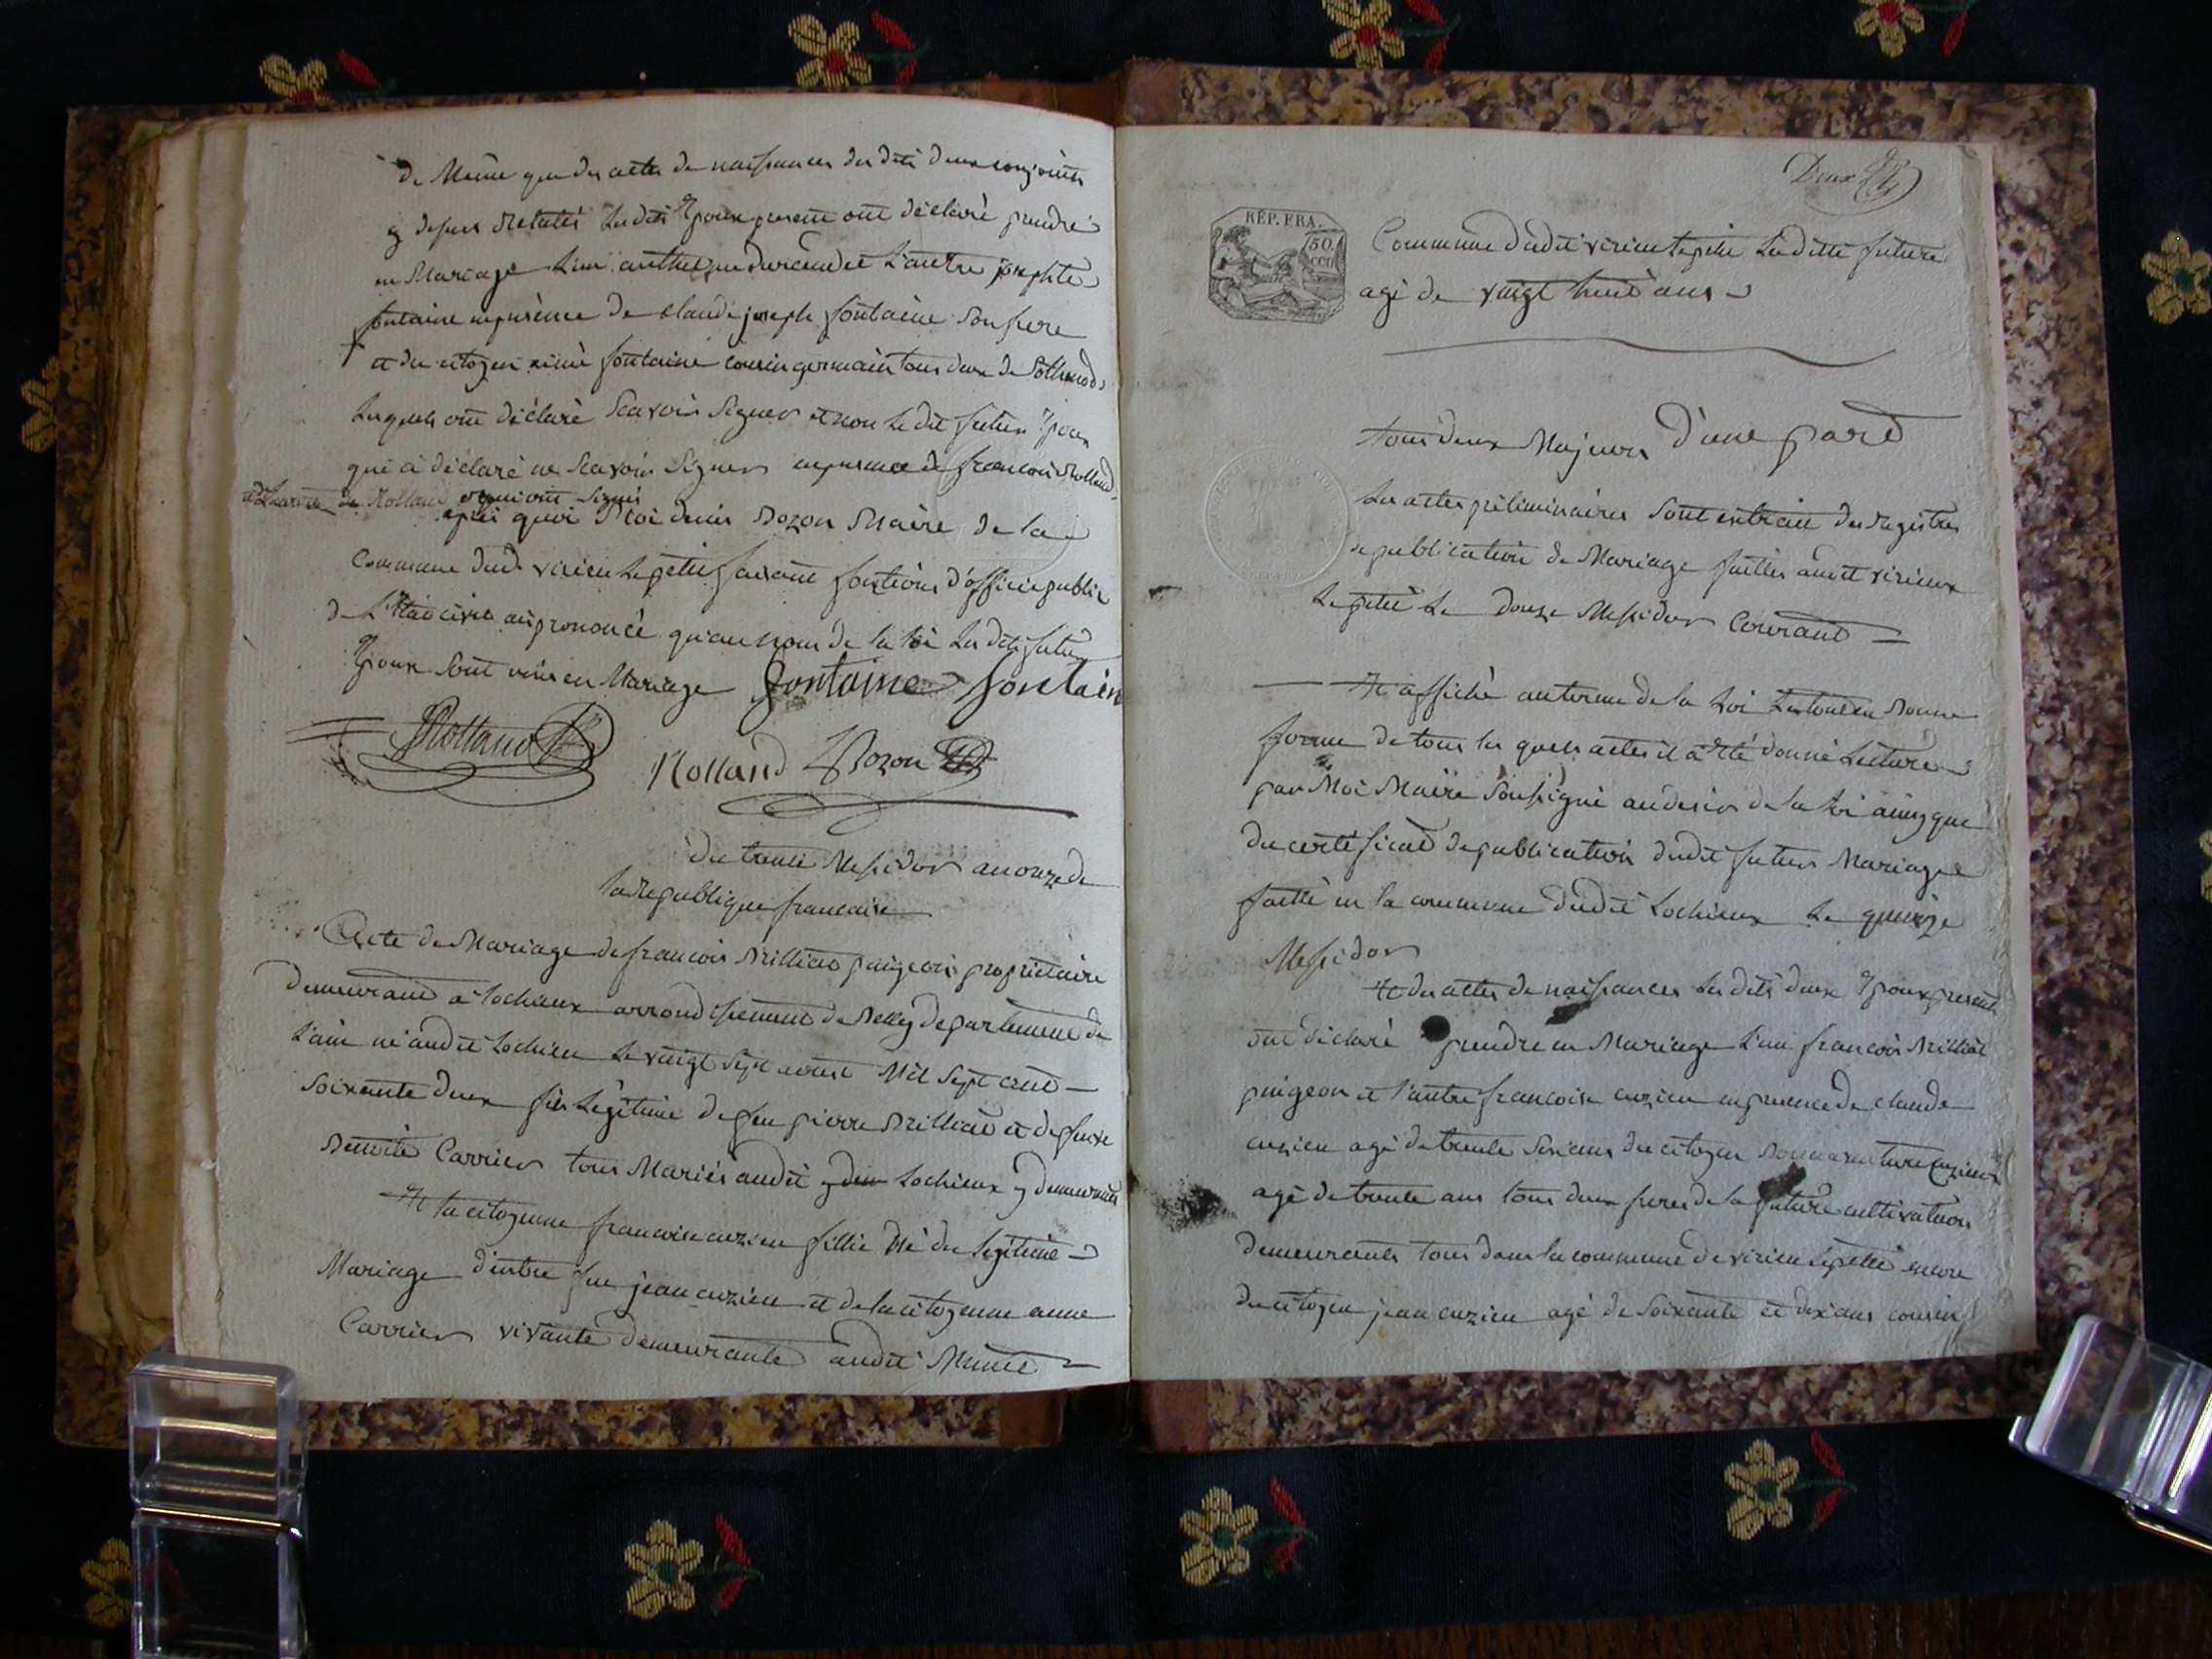 de Meme que des actes de naissances des dits deux conjoints
y dessus relatés Lesdits Epoux present ont déclaré prendre
en Mariage L'un anthelme durand et L'autre josephte
fontaine en présence de claude joseph fontaine Son pere
et du citoyen aimé fontaine cousin germain tous deux de Sothonod
Lesquels ont déclaré Scavoir Signer et non Le dit futur Epoux
qui à déclaré ne Scavoir Signer en presence de francois Rolland
de Rolland qui ont Signés
après quoi Moi denis Bozon Maire de la
Commune dud virieu Lepetit faisant fonctions d'officier public
de L'Etat civil ai prononcé qu'au nom de la loi Les dits futurs
Epoux Sont unis en Mariage fontaine fontain
Rolland
Rolland Bozon
du trente Messidor an onze de
la republique francaise
Acte de Mariage de francois Milliat puigeon propriétaire
demeurant a Lochieux arrondissement de Belley departement de
L'ain né audit Lochieu Le vingt Sept aoust Mil Sept cent
Soixante deux fils Legitime de feu pierre Milliat et de feue
Benoite Carrier tous Mariés audit Lochieux y demeurants
Et la citoyenne francoise cuzieu fillie Né du Legitime
Mariage d'entre feu jean cuzieu et de la citoyenne anne
Carrier vivante demeurante audit Même
Deux
RÉP. FRA.
50.
CEN
Commune dudit virieu Lepetit Laditte future
agé de vingt huit ans
tous deux Majeurs d'une part
Les actes préliminaires Sont extrait des registres
de publication de Mariage faittes audit virieux
Lepetit Le douze Messidor Courant
Et affiché au terme de la Loi Letout en Bonne
forme de tous les quels actes il a Eté donné Lecture
par Moi Maire Soussigné au desir de la Loi ainsy que
du certificat de publication dudit futur Mariage
faitte en la commune dudit Lochieux Le quinze
Messidor
Et des actes de naissances Les dits deux Epoux present
ont déclaré prendre en Mariage L'un francois Milliat
puigeon et l'autre francoise cuzieu en presence de claude
cuzieu agé de trente Six ans du citoyen Bonaventure Cuzieux
agé de trente ans tous deux freres de la future cultivateurs
demeurants tous dans la commune de virieu Lepetit encore
du citoyen jean cuzieu agé de Soixante et dix ans cousin